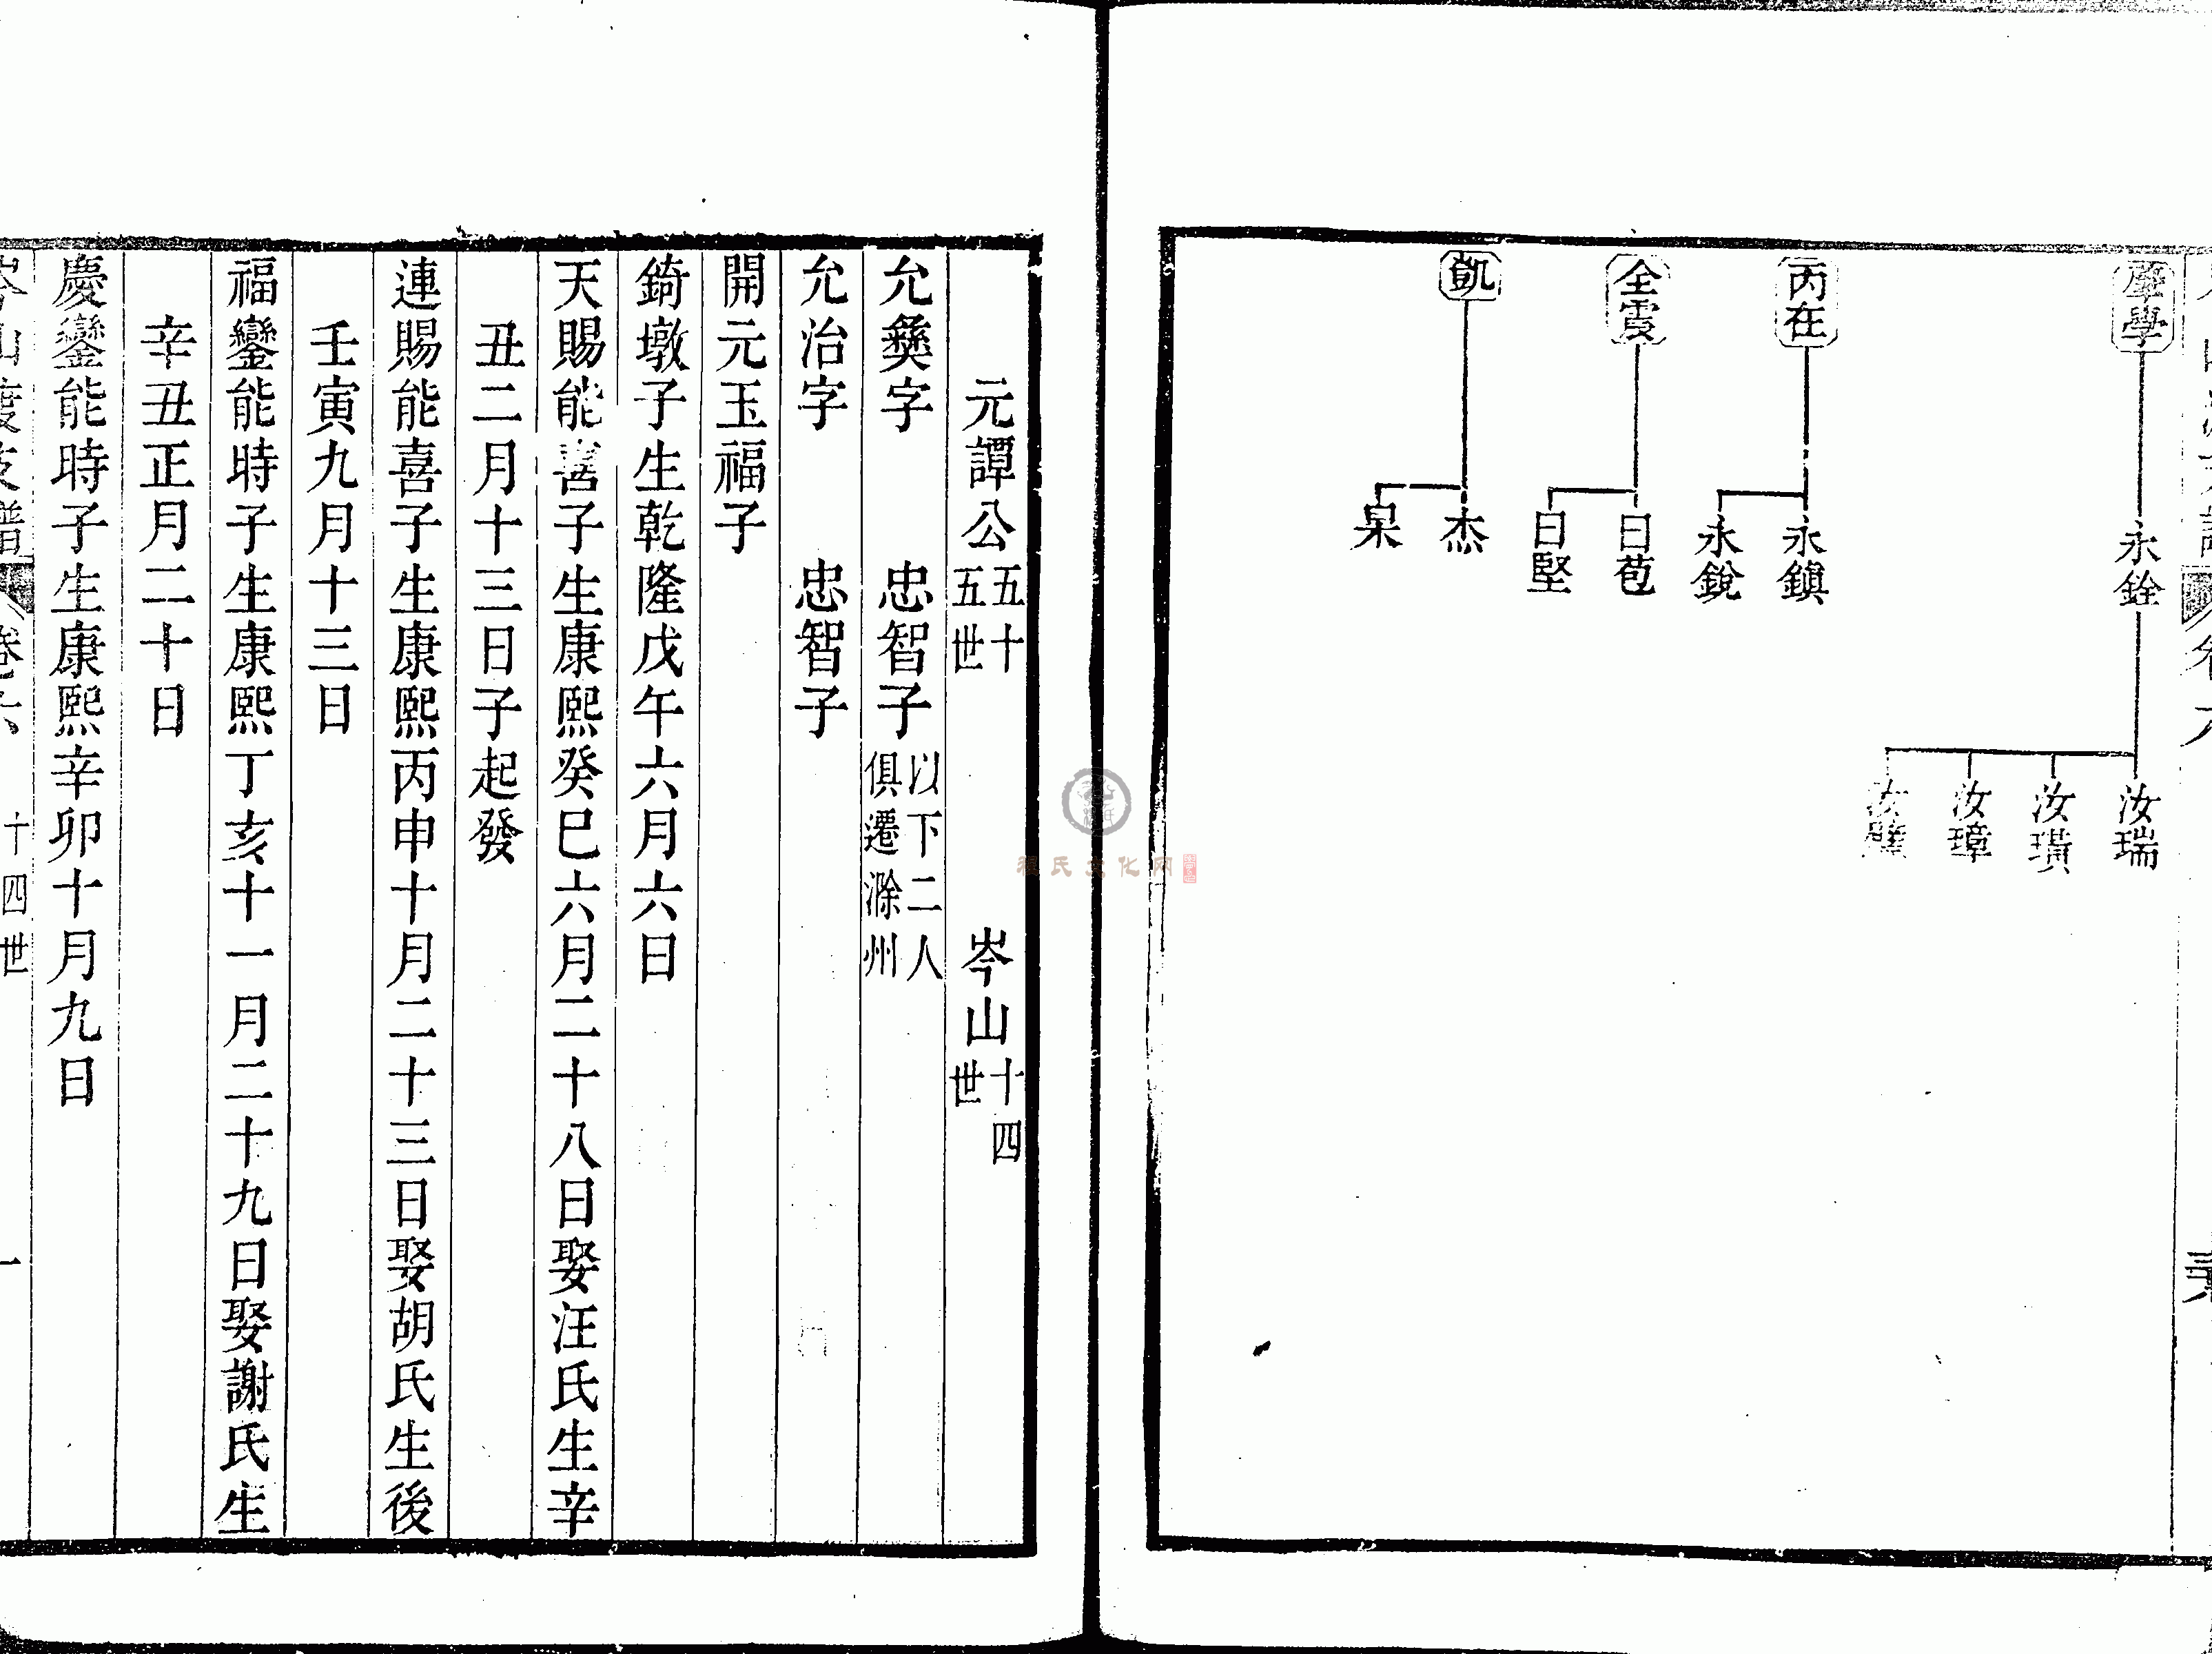 肇學
永銓
汝瑞
汝璜
汝璋
汝璧
丙在
永鎮
永銳
全霞
日苞
日堅
凱
杰
杲
元譚公五十五世 岑山十四世
允彝字 忠智子以下二人俱遷滁州
允治字 忠智子
開元玉福子
錡墩子生乾隆戊午六月六日
天賜能喜子生康熙癸巳六月二十八日娶汪氏生辛
丑二月十三日子起發
連賜能喜子生康熙丙申十月二十三日娶胡氏生後
壬寅九月十三日
福鑾能時子生康熙丁亥十一月二十九日娶謝氏生
辛丑正月二十日
慶鑾能時子生康熙辛卯十月九日
岑山渡支譜 卷六 十四世 一
程氏文化网